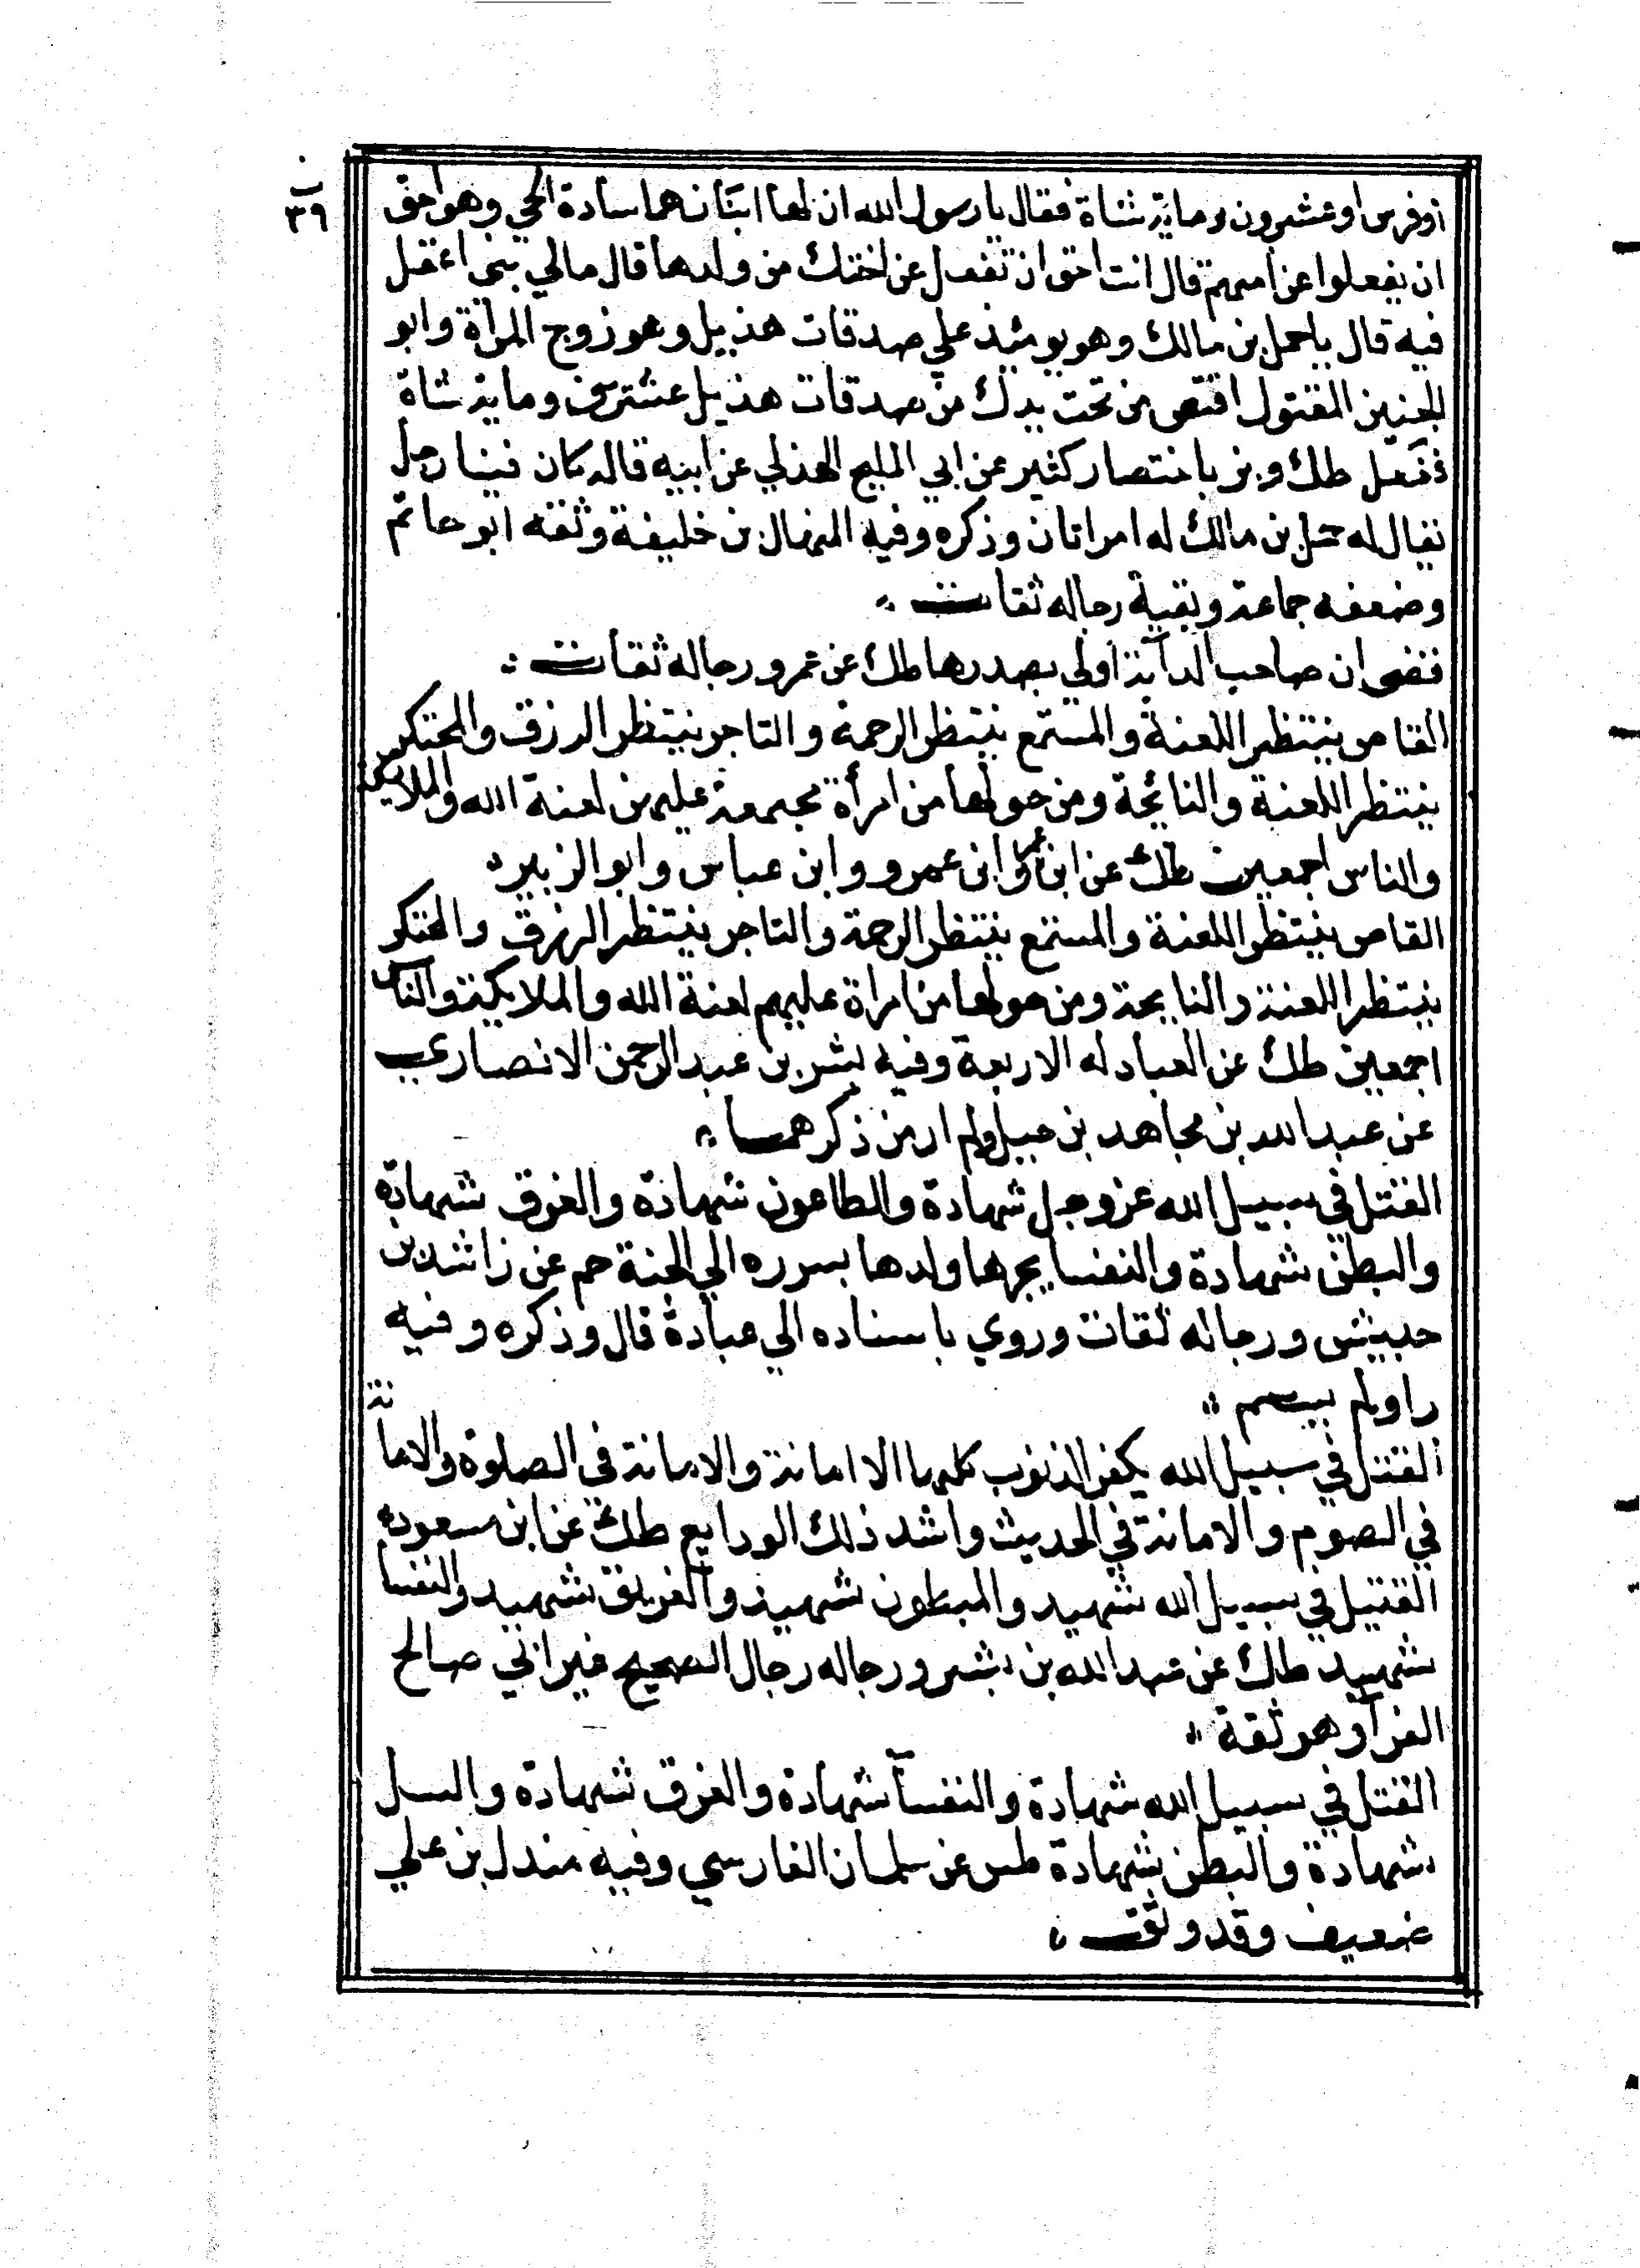 ب
٣٩
او فرس او عشرون ومائة شاة فقال يا رسول الله ان لها ابنان هما سادة الحي وهو احق
ان يفعلوا عن امهم قال انت احق ان تفعل عن اختك من ولدها قال مالي شى اعقل
فيه قال يا حمل بن مالك وهو يومئذ علي صدقات هذيل وهو زوج المرأة وابو
الجنين المقتول اقتص من تحت يدك من صدقات هذيل عشرين وماية شاة
ففعل طك وبز باختصار كثير عن ابي المليح الهذلي عن ابيه قال كان فينا رجل
يقال له حمل بن مالك له امراتان وذكره وفيه المنهال بن خليفة وثقه ابو حاتم
وضعفه جماعة وبقية رجاله ثقات
قضى ان صاحب الدآبة اولي بصدرها طك عن عمر ورجاله ثقات
القاص ينتظر اللعنة والمستمع ينتظر الرحمة والتاجر ينتظر الرزق والمحتكر
ينتظر اللعنة والنائحة ومن حولها من امرأة مجتمعة عليهن لعنة الله والملايكة
والناس اجمعين طك عن ابن عمر وابن عمرو وابن عباس وابو الزبير
القاص ينتظر اللعنة والمستمع ينتظر الرحمة والتاجر ينتظر الرزق والمحتكر
ينتظر اللعنة والنايحة ومن حولها من امراة عليهم لعنة الله والملايكة والناس
اجمعين طك عن العبادله الاربعة وفيه بشر بن عبد الرحمن الانصاري
عن عبد الله بن مجاهد بن جبل ولم ار من ذكرهما
القتل في سبيل الله عز وجل شهادة والطاعون شهادة والغرق شهادة
والبطن شهادة والنفسا يجرها ولدها بسرره الي الجنة حم عن راشد بن
حبيش ورجاله ثقات وروي باسناده الي عبادة قال وذكره وفيه
راو لم يسم
القتل في سبيل الله يكفر الذنوب كلها الا امانة والامانة في الصلوة والامانة
في الصوم والامانة في الحديث واشد ذلك الودايع طك عن ابن مسعود
القتيل في سبيل الله شهيد والمبطون شهيد والغريق شهيد والنفسا
شهيد طك عن عبد الله بن بشر ورجاله رجال الصحيح غير ابي صالح
الفرآ وهو ثقة
القتل في سبيل الله شهادة والنفسآ شهادة والغرق شهادة والسل
شهادة والبطن شهادة طس عن سلمان الفارسي وفيه مندل بن علي
ضعيف وقد وثق